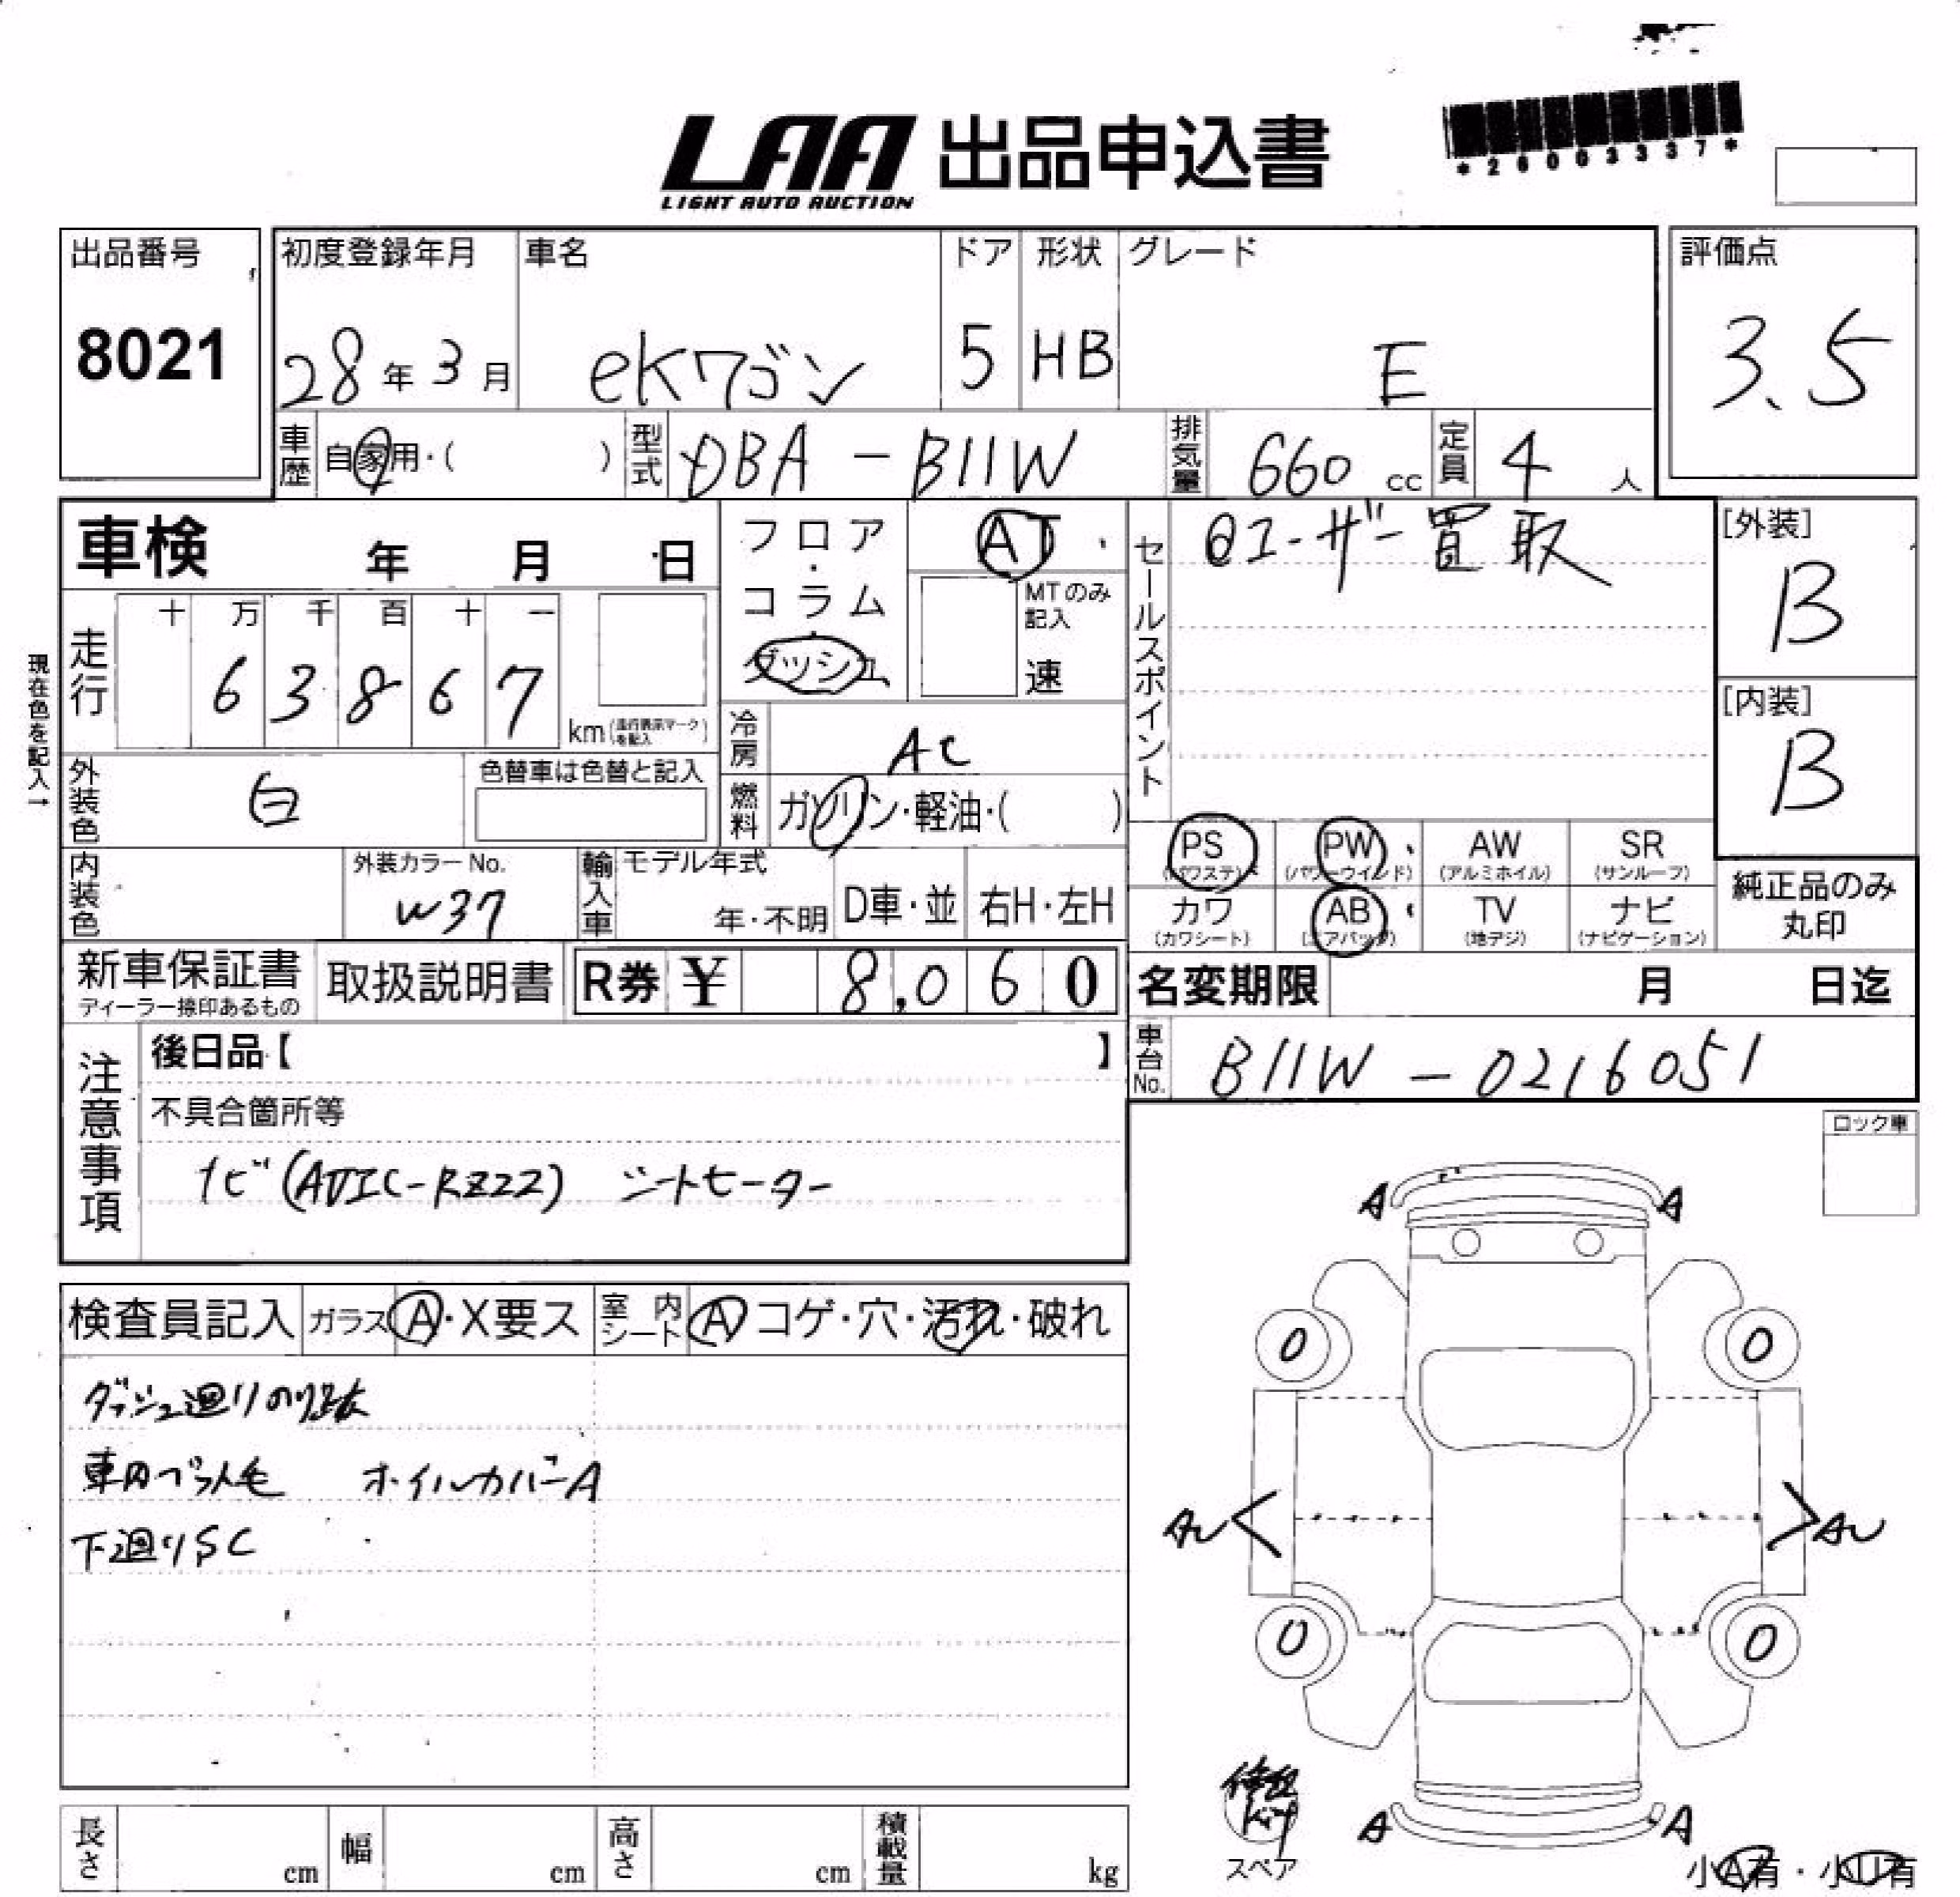 LAA 出品申込書
LIGHT AUTO AUCTION
*26003337*
出品番号
8021
初度登録年月
28年3月
車名
ekワゴン
ドア
5
形状
HB
グレード
E
評価点
3.5
車歴
自家用・( )
型式
DBA-B11W
排気量
660 cc
定員
4 人
車検 年 月 日
フロア・コラム・ダッシュ
AT
MTのみ記入
速
セールスポイント
ユーザー買取
[外装]
B
[内装]
B
現在色を記入→
走行
十 万 千 百 十 一
6 3 8 6 7
km(走行表示マークを記入)
冷房
AC
燃料
ガソリン・軽油・( )
外装色
白
色替車は色替と記入
内装色
外装カラーNo.
W37
輸入車
モデル年式
年・不明
D車・並
右H・左H
PS
(パワステ)
PW
(パワーウインド)
AW
(アルミホイル)
SR
(サンルーフ)
カワ
(カワシート)
AB
(エアバッグ)
TV
(地デジ)
ナビ
(ナビゲーション)
純正品のみ
丸印
新車保証書
ディーラー捺印あるもの
取扱説明書
R券 ¥ 8,060
名変期限 月 日迄
車台No.
B11W-0216051
注意事項
後日品【 】
不具合箇所等
ナビ(AVIC-RZ22) シートヒーター
ロック車
検査員記入
ガラス A・X要ス
室内シート A コゲ・穴・汚れ・破れ
ダッシュ廻りのり跡
車内ペット毛 ホイルカバーA
下廻りSC
A A
0 0
AU AU
0 0
A A
修理kit
スペア
小A有・小U有
長さ cm
幅 cm
高さ cm
積載量 kg